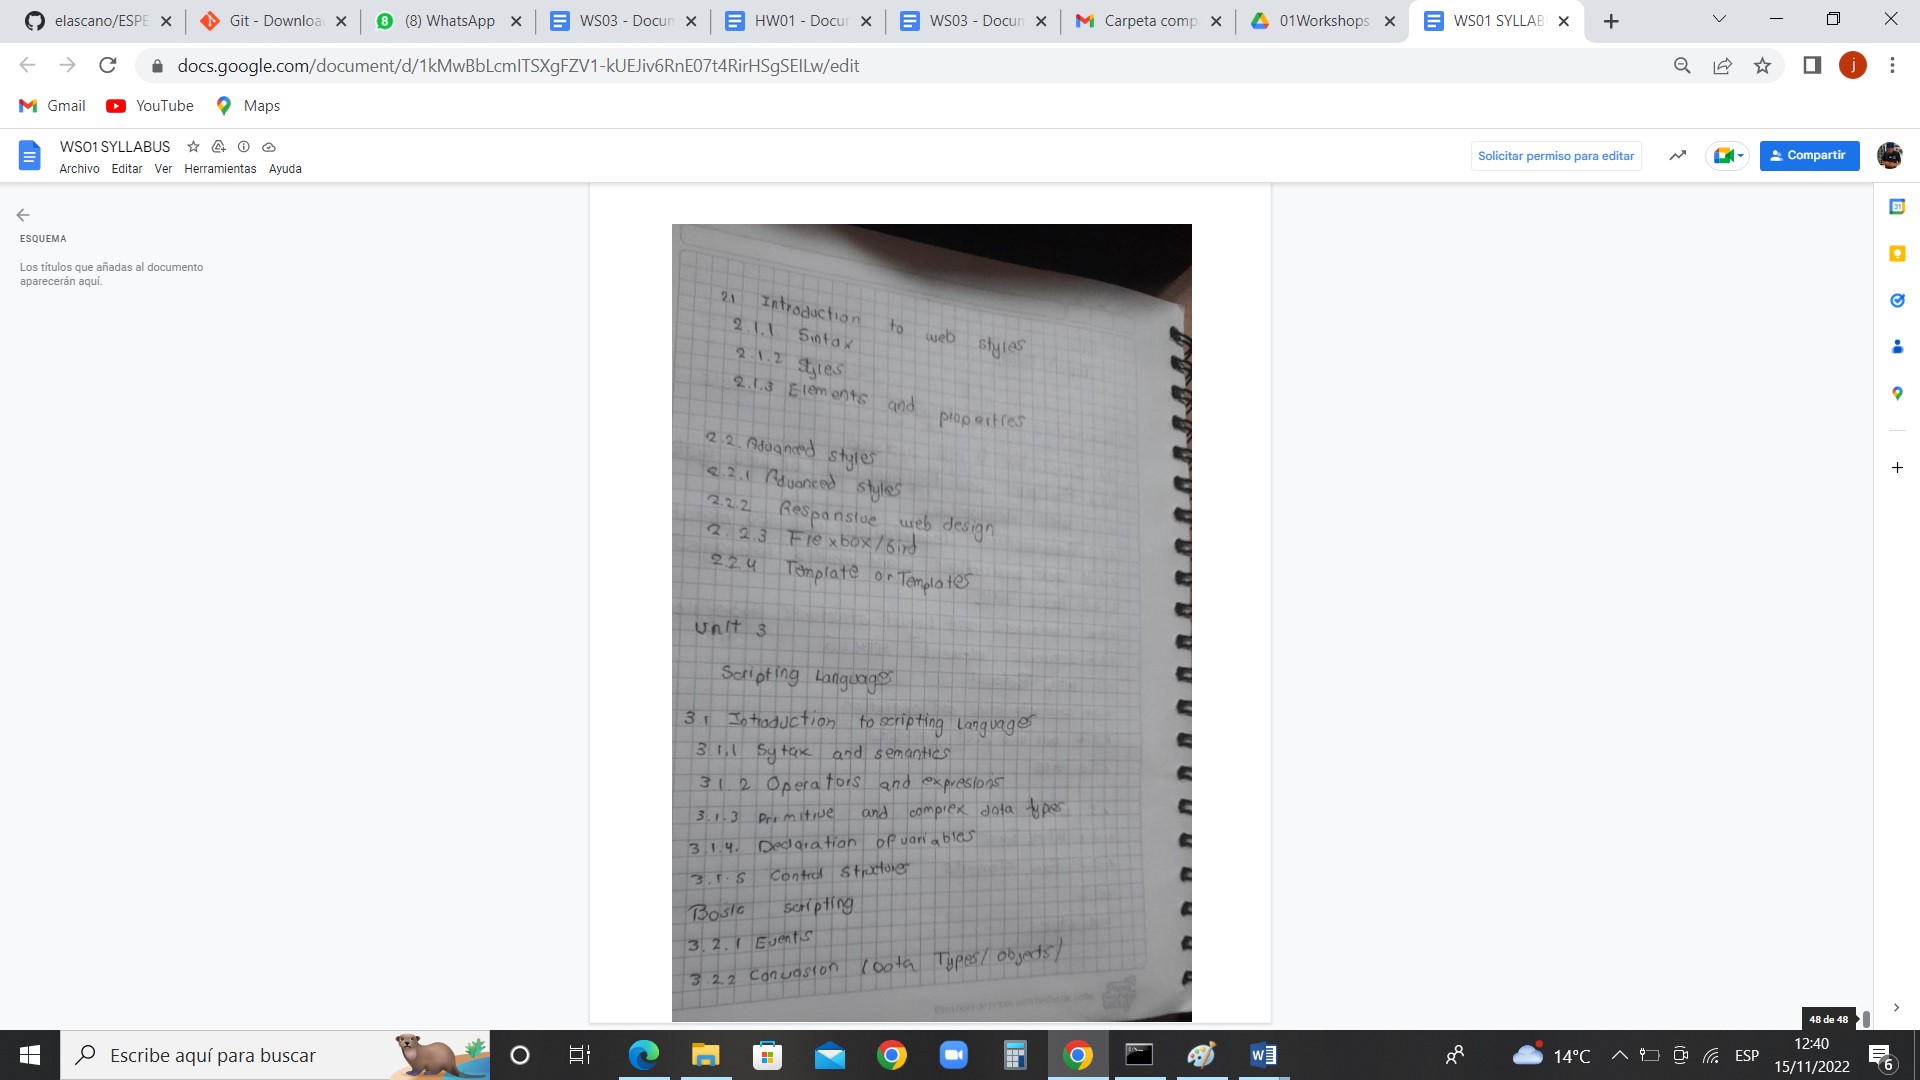 elascano/ESPE
Git - Downloa
(8) WhatsApp
WS03 - Docum
HW01 - Docur
WS03 - Docum
Carpeta comp
01Workshops
WS01 SYLLAB
docs.google.com/document/d/1kMwBbLcmITSXgFZV1-kUEJiv6RnE07t4RirHSgSEILw/edit
j
Gmail
YouTube
Maps
WS01 SYLLABUS
Archivo Editar Ver Herramientas Ayuda
Solicitar permiso para editar
Compartir
ESQUEMA
Los títulos que añadas al documento
aparecerán aquí.
31
2.1 Introduction to web styles
2.1.1 Sintax
2.1.2 Styles
2.1.3 Elements and properties
2.2. Advanced styles
2.2.1 Advanced styles
2.2.2 Responsive web design
2.2.3 Flexbox/Gird
2.2.4 Template or Templates
Unit 3
Scripting Languages
3.1 Introduction to scripting Languages
3.1.1 Sytax and semantics
3.1.2 Operators and expresions
3.1.3 Primitive and complex data types
3.1.4. Declaration of variables
3.1.5 Control Structures
Basic scripting
3.2.1 Events
3.2.2 Conversion (Data Types/objects)
48 de 48
Escribe aquí para buscar
14°C
ESP
12:40
15/11/2022
6